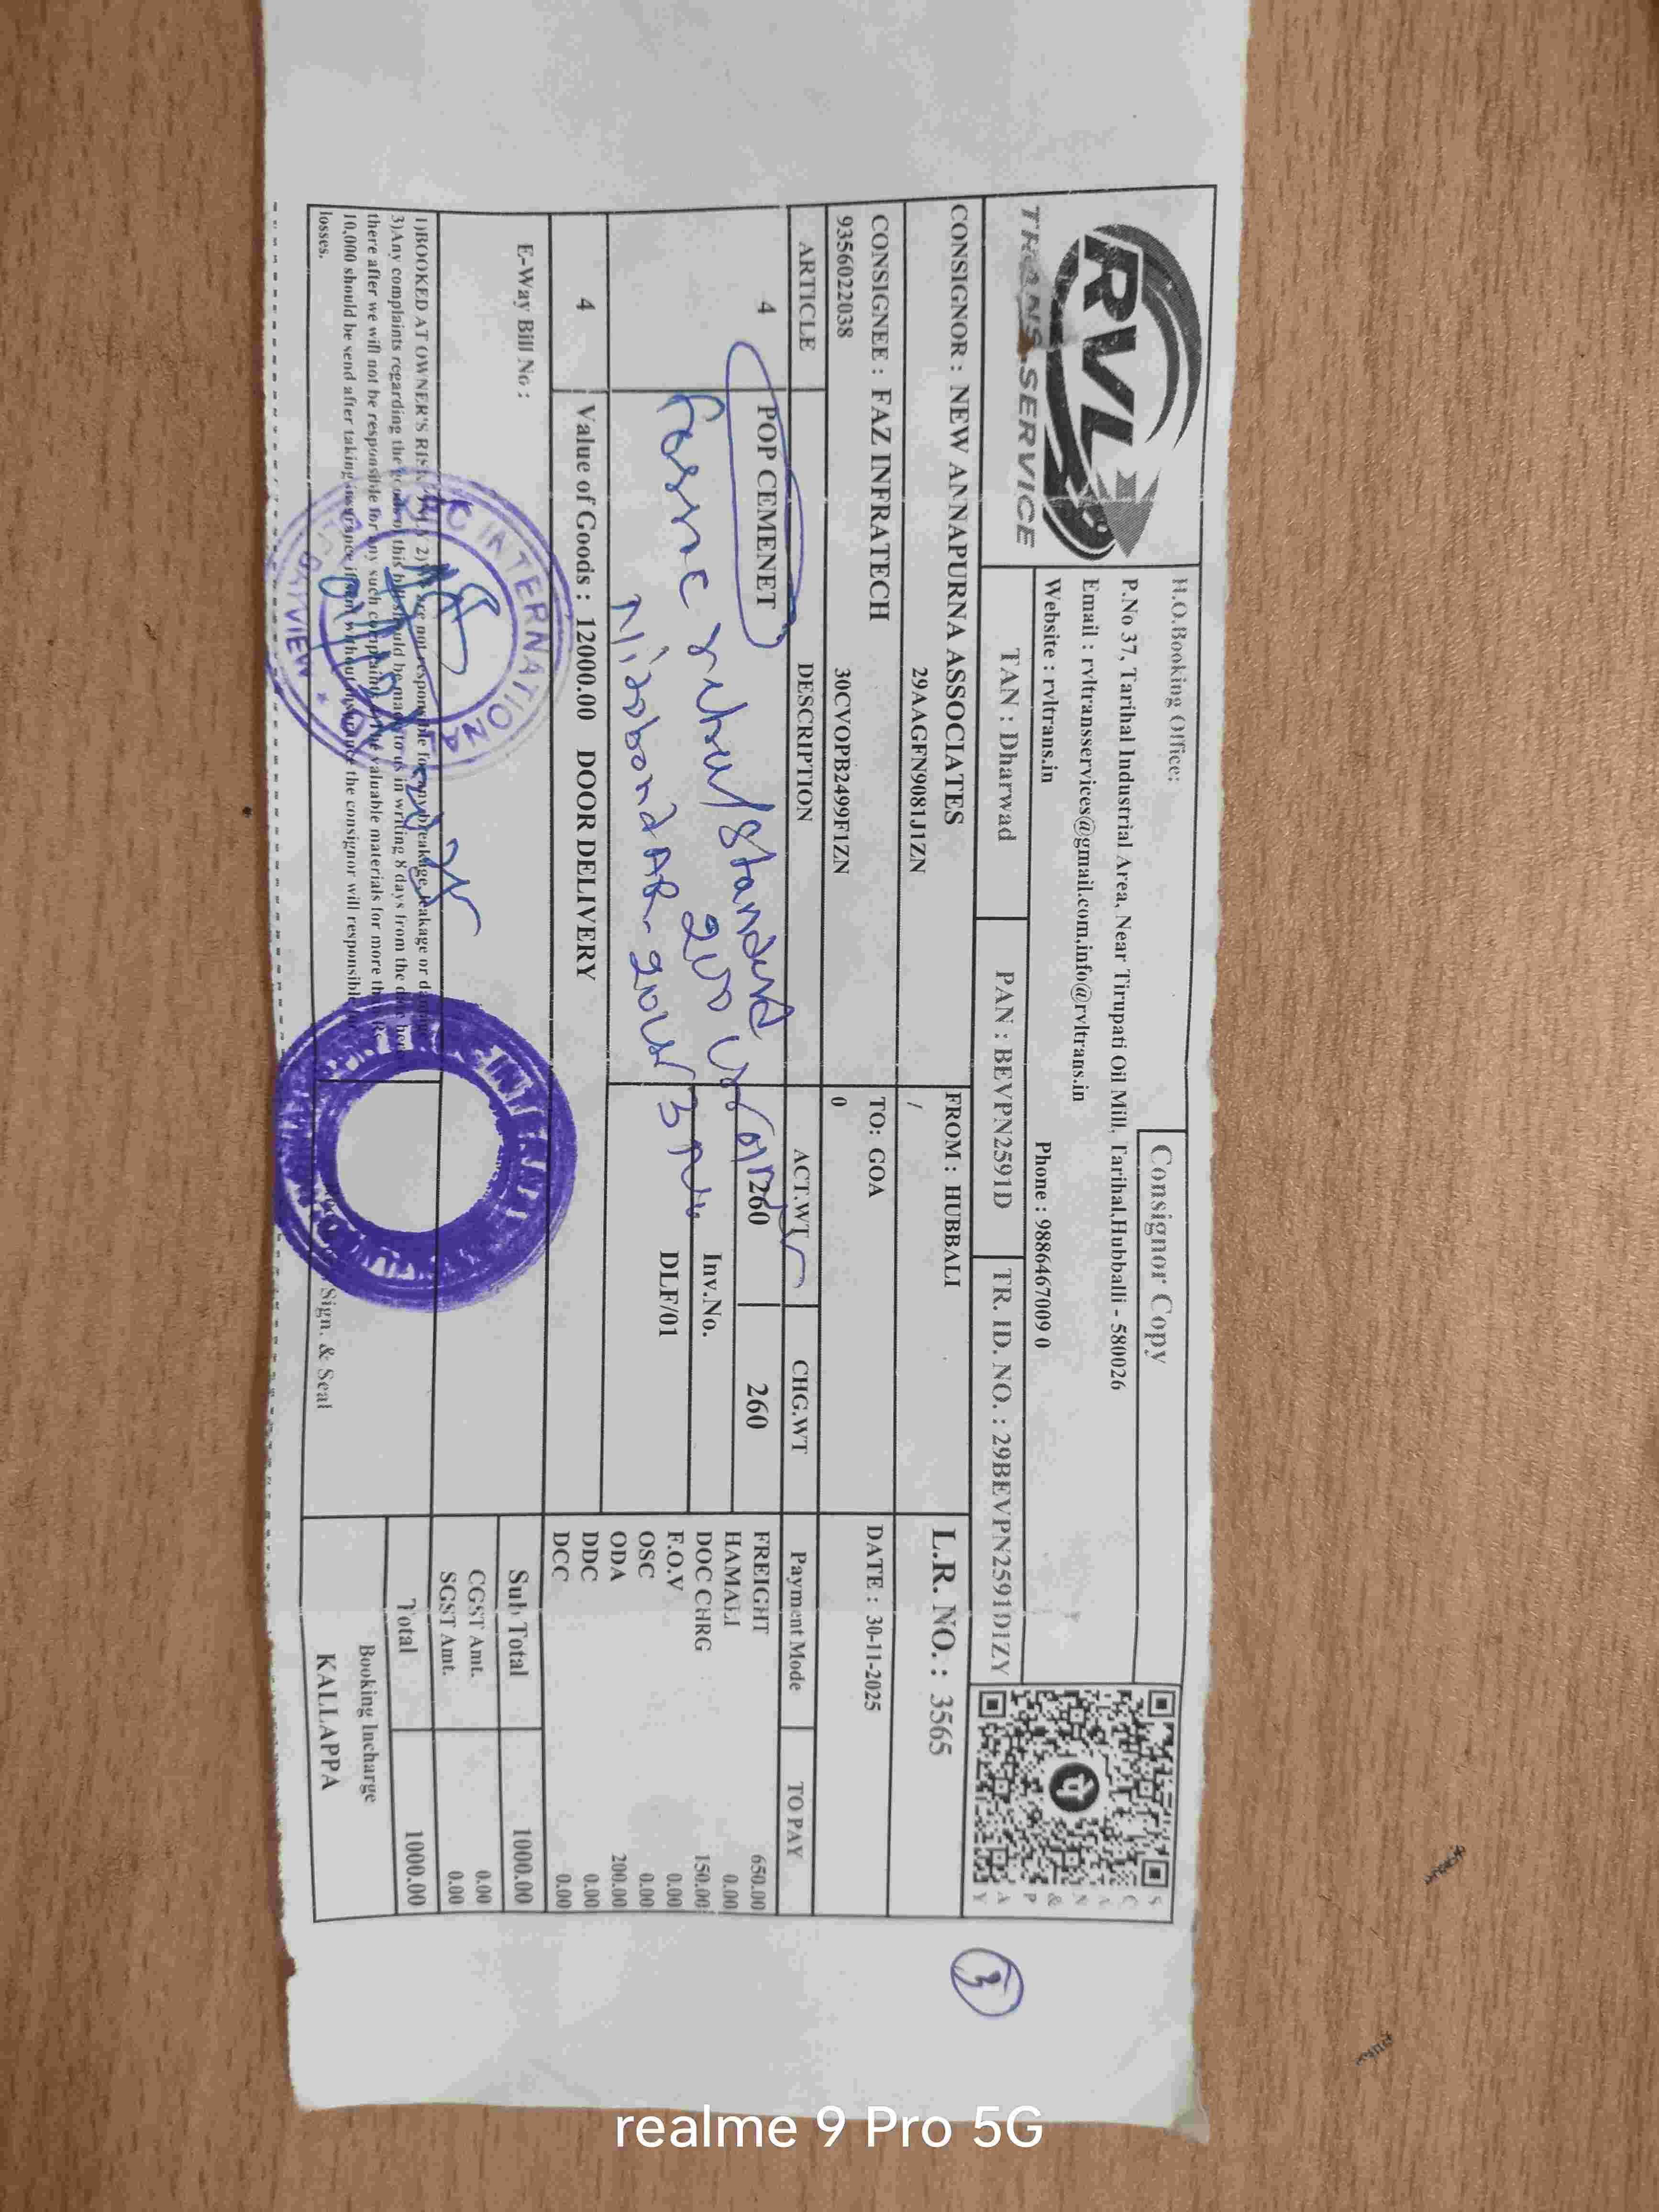 RVL
TRANS SERVICE
H.O.Booking Office:
Consignor Copy
P.No 37, Tarihal Industrial Area, Near Tirupati Oil Mill, Tarihal,Hubballi - 580026
Email : rvltransservices@gmail.com,info@rvltrans.in
Website : rvltrans.in Phone : 9886467009 0
SCAN & PAY
TAN : Dharwad PAN : BEVPN2591D TR. ID. NO. : 29BEVPN2591D1ZY
CONSIGNOR : NEW ANNAPURNA ASSOCIATES FROM : HUBBALI L.R. NO. : 3565
29AAGFN9081J1ZN /
CONSIGNEE : FAZ INFRATECH TO: GOA DATE : 30-11-2025
9356022038 30CVOPB2499F1ZN 0
ARTICLE DESCRIPTION ACT.WT CHG.WT Payment Mode TO PAY
4 POP CEMENET 260 260 FREIGHT 650.00
HAMALI 0.00
Inv.No. DOC CHRG 150.00
DLF/01 F.O.V 0.00
OSC 0.00
ODA 200.00
4 Value of Goods : 12000.00 DOOR DELIVERY DDC 0.00
DCC 0.00
E-Way Bill No : Sub Total 1000.00
CGST Amt. 0.00
SGST Amt. 0.00
Total 1000.00
1)BOOKED AT OWNER'S RISK 2) are not responsible for any breakage, leakage or
3)Any complaints regarding the goods of this bill should be made to us in writing 8 days from the date
there after we will not be responsible for any such complaint valuable materials for more
10,000 should be send after taking insurance if sent without the consignor will responsible
losses.
Sign. & Seal
Booking Incharge
KALLAPPA
INTERNATIONAL
3
realme 9 Pro 5G